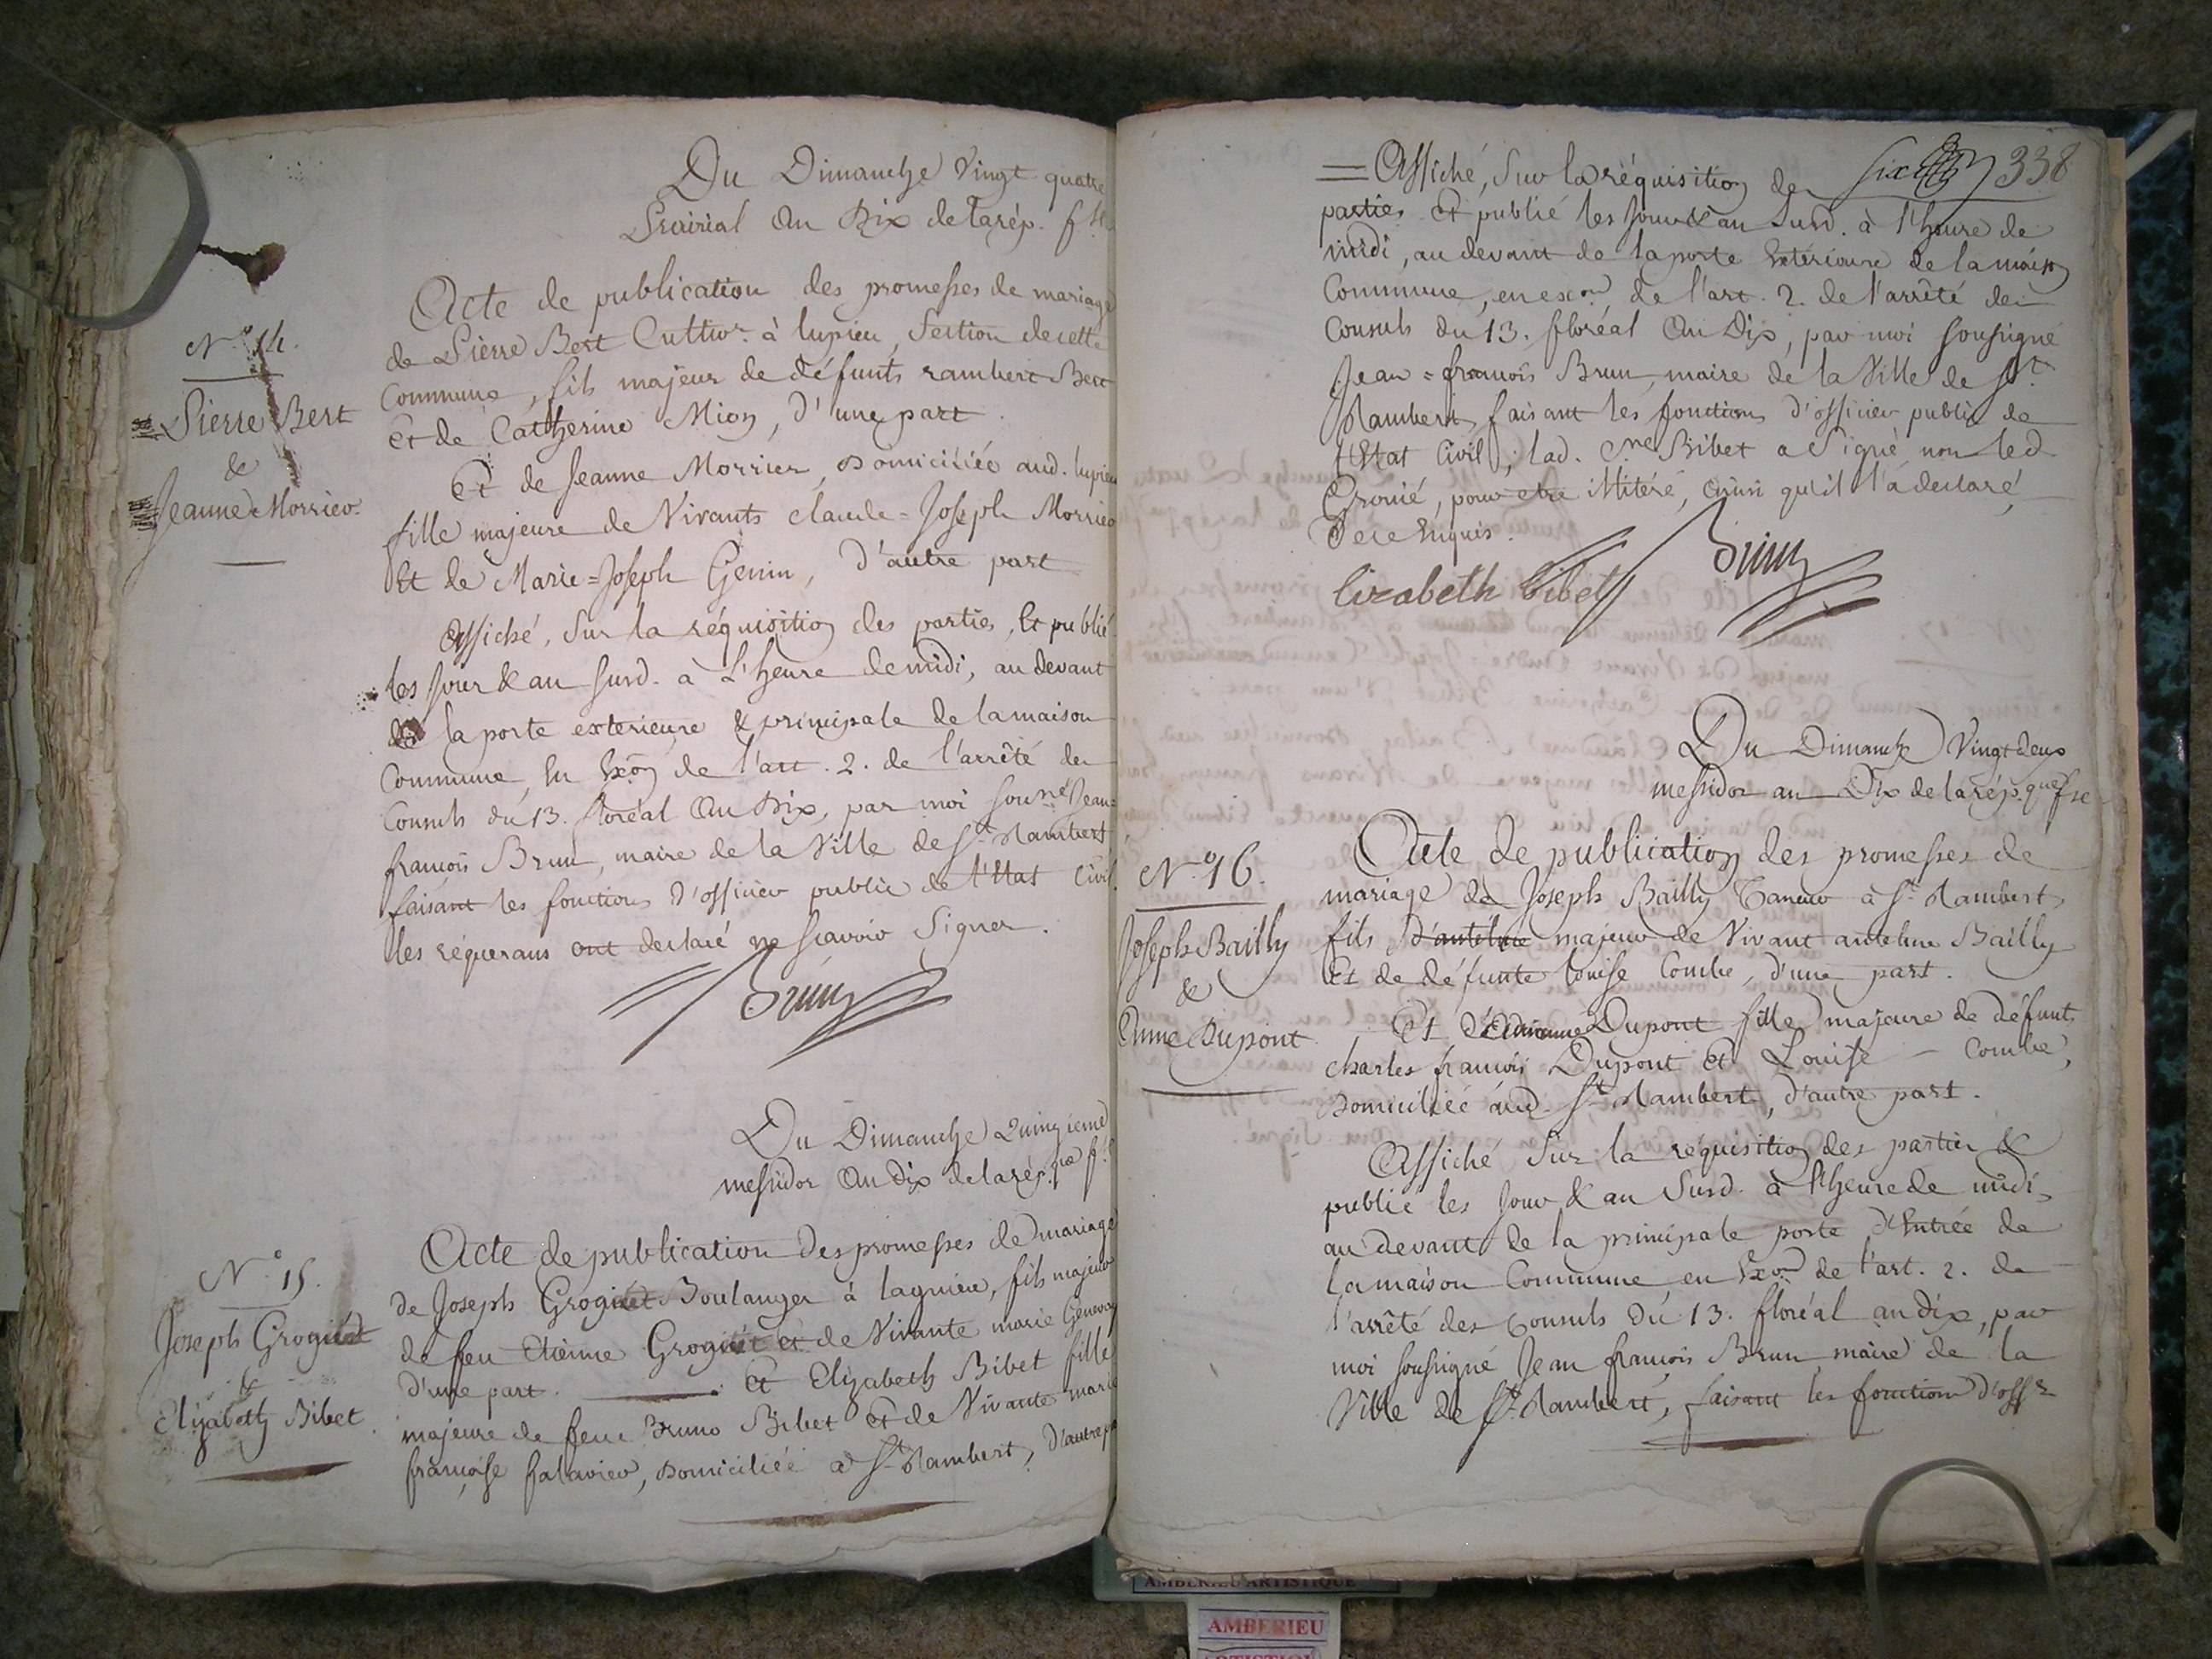 Du Dimanche Vingt quatre
Prairial an Dix de la rép. f.se
Acte de publication des promesses de mariage
N.° 14.
de Pierre Bert Cultiv.r à lupieu, Section de cette
Commune, fils majeur de défunts rambert Bert
Pierre Bert
Et de Catherine Mion, d'une part.
&
Et de Jeanne Morrier, Domiciliée aud. lupieu
Jeanne Morrier.
fille majeure de Vivants claude=Joseph Morrier
Et de Marie=Joseph Genin, d'autre part
Affiché, Sur la réquisition des parties, Et publié
les Jour & an Susd. à L'heure de midi, au devant
de la porte exterieure & principale de la maison
Commune, En Exon de l'art. 2. de l'arrêté des
Consuls du 13. floréal an Dix, par moi sousné Jean=
francois Brun, maire de la Ville de St. Rambert
faisant les fonctions d'officier public de l'Etat Civil.
les réquerans ont declaré ne scavoir Signer.
Brun
Du Dimanche Quinzieme
messidor an dix de la rép.que f.se
Acte de publication des promesses de mariage
N.° 15.
de Joseph Grogniet Boulanger à lagnieu, fils majeur
Joseph Grogniet
de feu Etienne Grogniet et de Vivante marie
&
d'une part. Et Elizabeth Bibet fille
Elizabeth Bibet.
majeure de feu Bruno Bibet et de Vivante marie
francoise falavier, Domiciliée à St. Rambert, d'autre part
six 338
= Affiché, Sur la réquisition des
parties Et publié les Jour & an Susd. à l'heure de
midi, au devant de la porte Extérieure de la maison
Commune, en exon de l'art. 2. de l'arrêté des
Consuls du 13. floréal an Dix, par moi soussigné
Jean=francois Brun, maire de la Ville de St.
Rambert, faisant les fonctions d'officier public de
l'Etat Civil; lad. Bibet a Signé, non led.
pour etre illitéré, ainsi qu'il l'a declaré,
De ce Enquis.
Elizabeth Bibet Brun
Du Dimanche Vingt-deux
messidor an Dix de la rép.que f.se
Acte de publication des promesses de
N.° 16.
mariage de Joseph Bailly Taneur à St. Rambert,
Joseph Bailly
fils d'antelme majeur de Vivant antelme Bailly
Et de défunte louise Combe, d'une part.
&
Anne Dupont
Et Dupont fille majeure de défunts
charles francois Dupont Et Louise Combe,
Domiciliée aud. St. Rambert, d'autre part.
Affiché Sur la requisition des parties &
publié les Jour & an Susd. à l'heure de midi,
au devant de la principale porte d'Entrée de
la maison Commune en Exon de l'art. 2. de
l'arrêté des Consuls du 13. floréal an dix, par
moi soussigné Jean francois Brun maire de la
Ville de St. Rambert, faisant les fonctions d'offer
AMBERIEU ARTISTIQUE
AMBERIEU